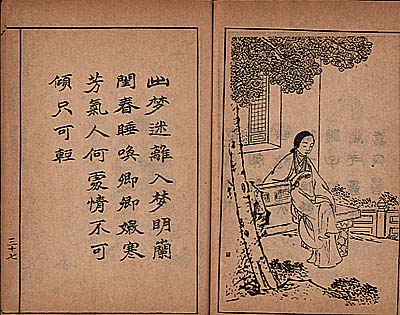 幽梦迷離入梦明蘭
閨春睡喚卿卿嫩寒
芳氣人何處情不可
傾只可輕
三十七